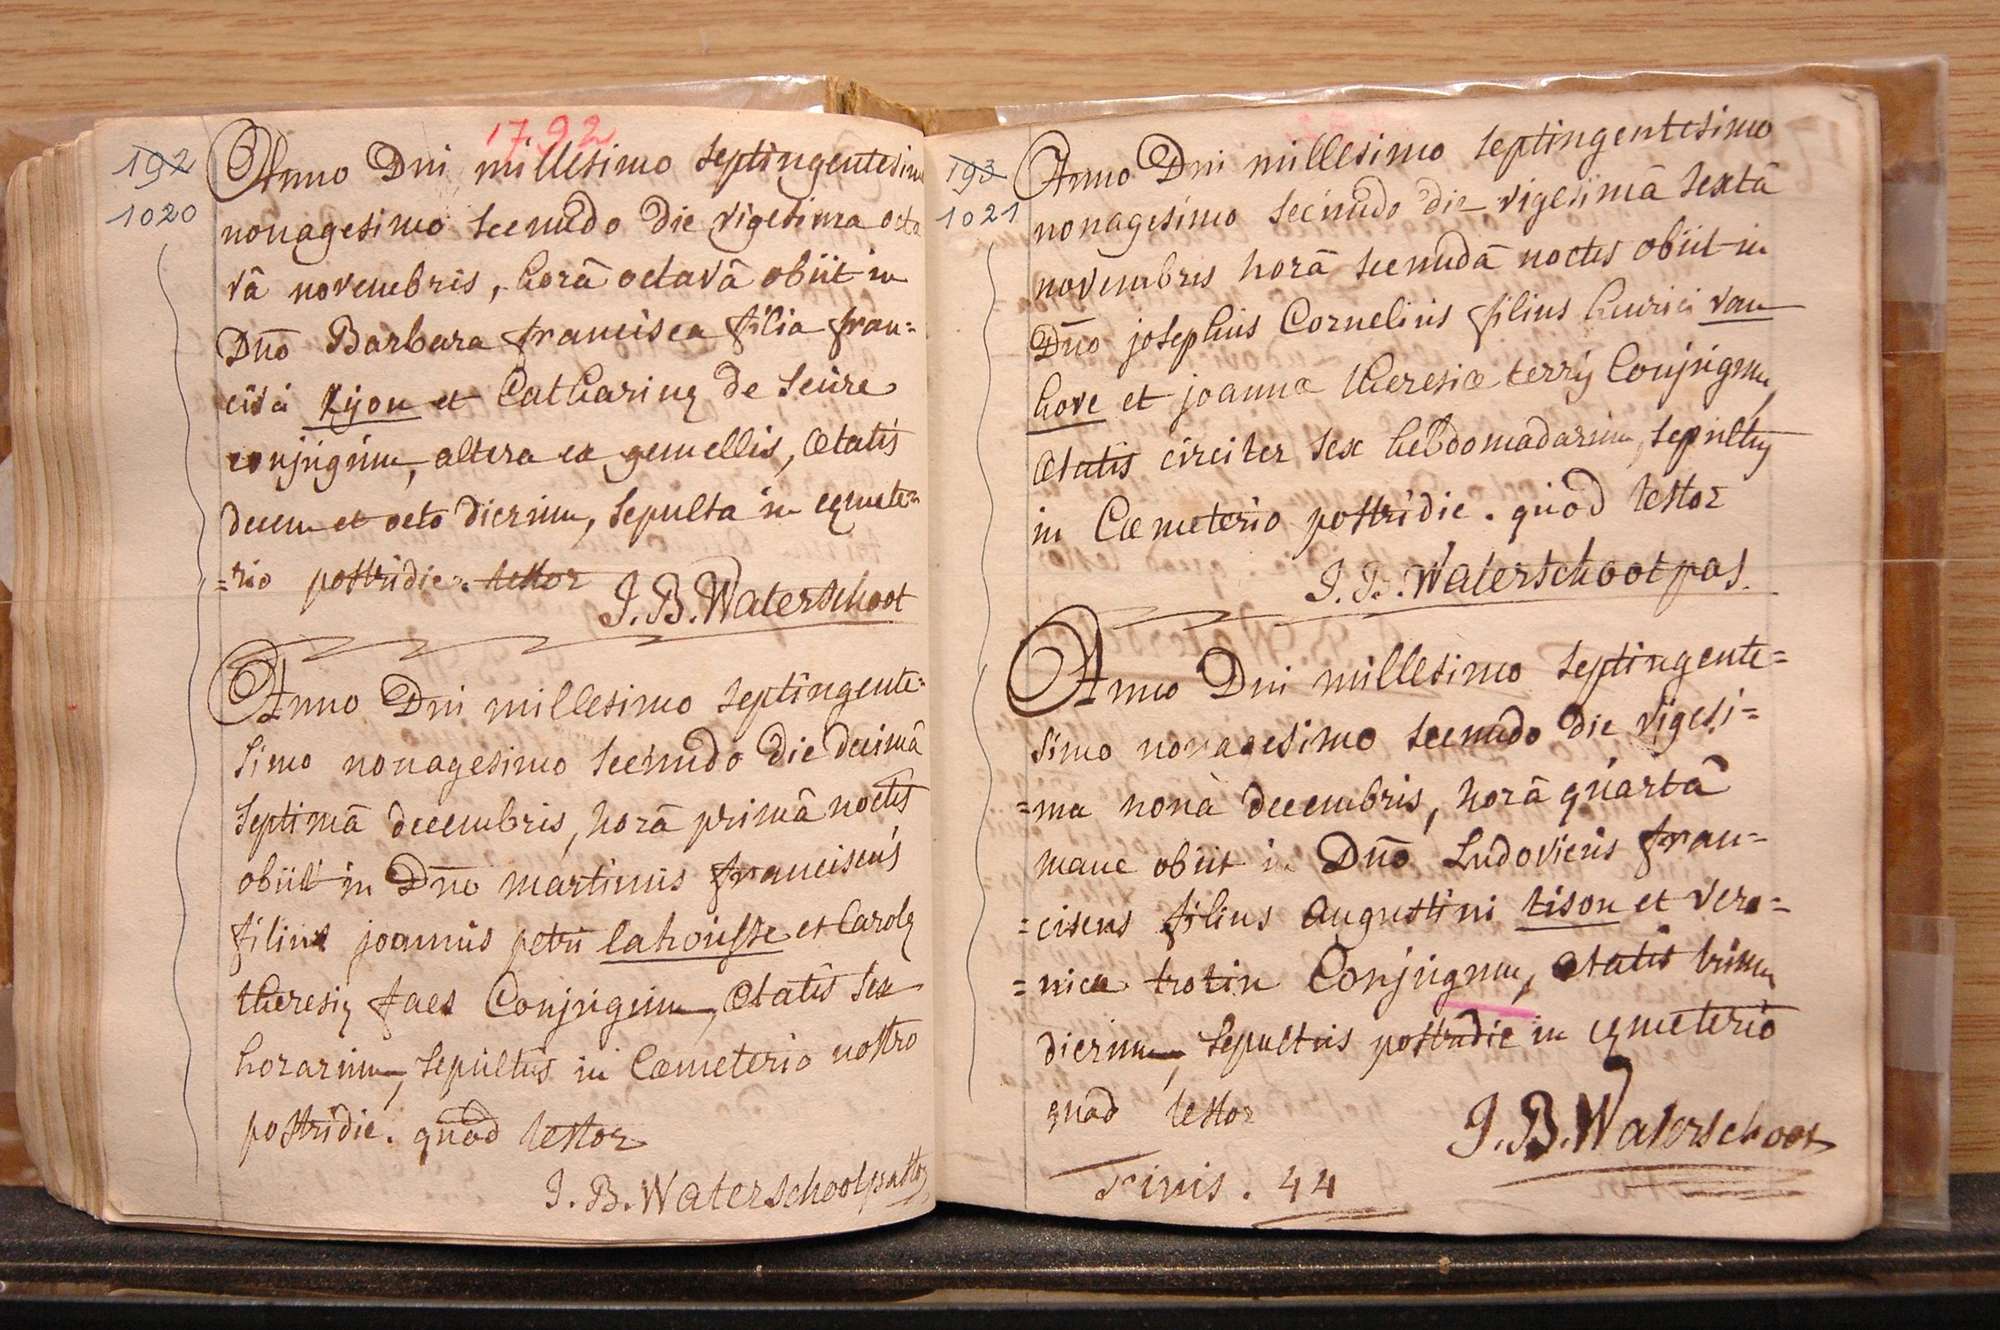 1792
192
1020
Anno Dni millesimo septingentesimo
nonagesimo secundo die vigesima octa
vâ novembris, horâ octavâ obiit in
Dno Barbara francisca filia fran=
cisci Lyon et Catharinę de Seure
conjugum, altera ex gemellis, ætatis
decem et octo dierum, sepulta in cęmete=
=rio postridie. testor
J. B. Waterschoot
Anno Dni millesimo septingente=
simo nonagesimo secundo die decimâ
septimâ decembris, horâ primâ noctis
obiit in Dno martinus franciscus
filius joannis petri lahousse et Carolę
theresię faes Conjugum, ætatis sex
horarum, sepultus in Cœmeterio nostro
postridie. quod testor
J. B. Waterschoot pastor
193
1021
Anno Dni millesimo septingentesimo
nonagesimo secundo die vigesimâ sextâ
novembris horâ secundâ noctis obiit in
Dno josephus Cornelius filius henrici van
hove et joannæ theresiæ terrÿ Conjugum,
ætatis circiter sex hebdomadarum, sepultus
in Cœmeterio postridie. quod testor
J. B. Waterschoot pas.
Anno Dni millesimo septingente=
simo nonagesimo secundo die vigesi=
=ma nonà decembris, horâ quartâ
mane obiit in Dno Ludovicus fran=
=ciscus filius augustini tison et vero=
=nicæ trotin Conjugum, ætatis trium
dierum, sepultus postridie in cęmeterio
quod testor
J. B. Waterschoot
finis. 44